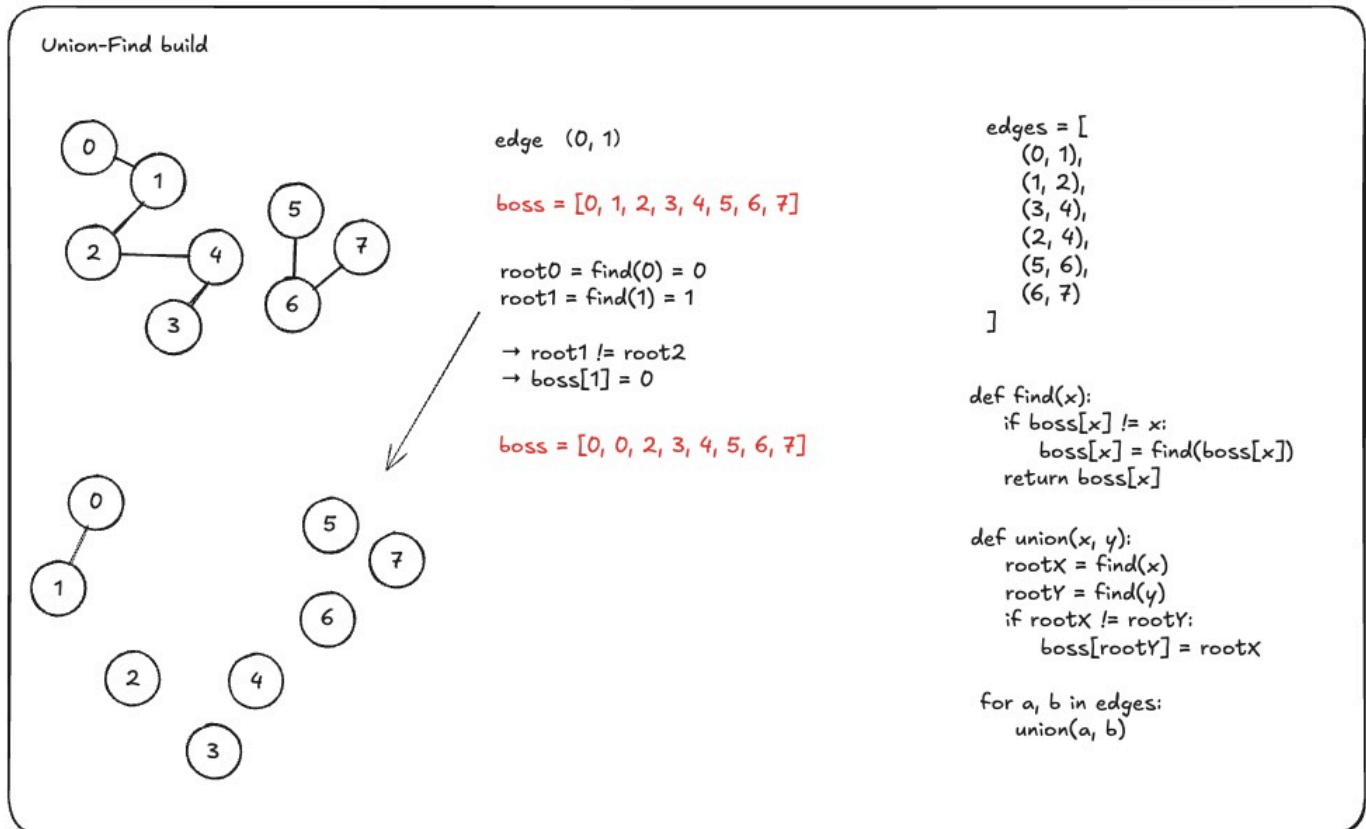 Union-Find build
0
1
2
4
3
5
7
6
edge (0, 1)
boss = [0, 1, 2, 3, 4, 5, 6, 7]
root0 = find(0) = 0
root1 = find(1) = 1
→ root1 != root2
→ boss[1] = 0
boss = [0, 0, 2, 3, 4, 5, 6, 7]
0
1
2
4
3
5
7
6
edges = [
(0, 1),
(1, 2),
(3, 4),
(2, 4),
(5, 6),
(6, 7)
]
def find(x):
if boss[x] != x:
boss[x] = find(boss[x])
return boss[x]
def union(x, y):
rootX = find(x)
rootY = find(y)
if rootX != rootY:
boss[rootY] = rootX
for a, b in edges:
union(a, b)